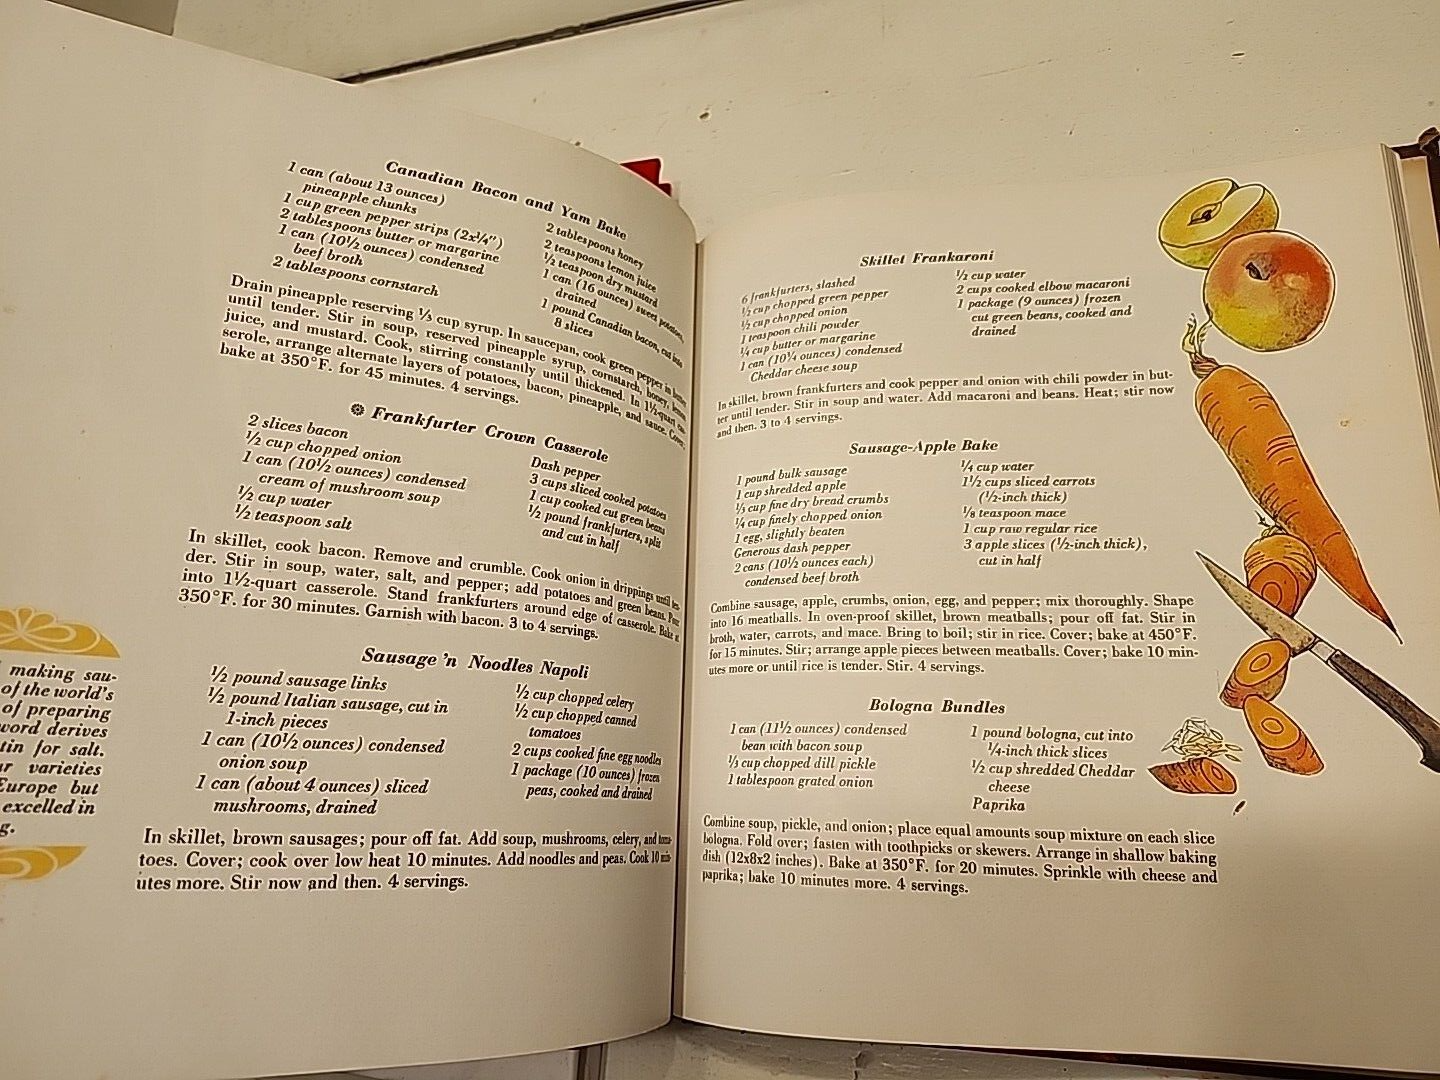 making sau-
of the world's
of preparing
word derives
tin for salt.
varieties
Europe but
excelled in
Canadian Bacon and Yam Bake
1 can (about 13 ounces)
pineapple chunks
1 cup green pepper strips (2x¼")
2 tablespoons butter or margarine
1 can (10½ ounces) condensed
beef broth
2 tablespoons cornstarch
2 tablespoons honey
2 teaspoons lemon juice
½ teaspoon dry mustard
1 can (16 ounces) sweet potatoes,
drained
1 pound Canadian bacon, cut into
8 slices
Drain pineapple reserving ⅓ cup syrup. In saucepan, cook green pepper in butter
until tender. Stir in soup, reserved pineapple syrup, cornstarch, honey, lemon
juice, and mustard. Cook, stirring constantly until thickened. In 1½-quart cas-
serole, arrange alternate layers of potatoes, bacon, pineapple, and sauce. Cover;
bake at 350°F. for 45 minutes. 4 servings.
Frankfurter Crown Casserole
2 slices bacon
½ cup chopped onion
1 can (10½ ounces) condensed
cream of mushroom soup
½ cup water
½ teaspoon salt
Dash pepper
3 cups sliced cooked potatoes
1 cup cooked cut green beans
½ pound frankfurters, split
and cut in half
In skillet, cook bacon. Remove and crumble. Cook onion in drippings until ten-
der. Stir in soup, water, salt, and pepper; add potatoes and green beans. Pour
into 1½-quart casserole. Stand frankfurters around edge of casserole. Bake at
350°F. for 30 minutes. Garnish with bacon. 3 to 4 servings.
Sausage 'n Noodles Napoli
½ pound sausage links
½ pound Italian sausage, cut in
1-inch pieces
1 can (10½ ounces) condensed
onion soup
1 can (about 4 ounces) sliced
mushrooms, drained
½ cup chopped celery
½ cup chopped canned
tomatoes
2 cups cooked fine egg noodles
1 package (10 ounces) frozen
peas, cooked and drained
In skillet, brown sausages; pour off fat. Add soup, mushrooms, celery, and toma-
toes. Cover; cook over low heat 10 minutes. Add noodles and peas. Cook 10 min-
utes more. Stir now and then. 4 servings.
Skillet Frankaroni
6 frankfurters, slashed
½ cup chopped green pepper
½ cup chopped onion
1 teaspoon chili powder
¼ cup butter or margarine
1 can (10¾ ounces) condensed
Cheddar cheese soup
½ cup water
2 cups cooked elbow macaroni
1 package (9 ounces) frozen
cut green beans, cooked and
drained
In skillet, brown frankfurters and cook pepper and onion with chili powder in but-
ter until tender. Stir in soup and water. Add macaroni and beans. Heat; stir now
and then. 3 to 4 servings.
Sausage-Apple Bake
1 pound bulk sausage
1 cup shredded apple
⅓ cup fine dry bread crumbs
¼ cup finely chopped onion
1 egg, slightly beaten
Generous dash pepper
2 cans (10½ ounces each)
condensed beef broth
¼ cup water
1½ cups sliced carrots
(½-inch thick)
⅛ teaspoon mace
1 cup raw regular rice
3 apple slices (½-inch thick),
cut in half
Combine sausage, apple, crumbs, onion, egg, and pepper; mix thoroughly. Shape
into 16 meatballs. In oven-proof skillet, brown meatballs; pour off fat. Stir in
broth, water, carrots, and mace. Bring to boil; stir in rice. Cover; bake at 450°F.
for 15 minutes. Stir; arrange apple pieces between meatballs. Cover; bake 10 min-
utes more or until rice is tender. Stir. 4 servings.
Bologna Bundles
1 can (11½ ounces) condensed
bean with bacon soup
⅓ cup chopped dill pickle
1 tablespoon grated onion
1 pound bologna, cut into
¼-inch thick slices
½ cup shredded Cheddar
cheese
Paprika
Combine soup, pickle, and onion; place equal amounts soup mixture on each slice
bologna. Fold over; fasten with toothpicks or skewers. Arrange in shallow baking
dish (12x8x2 inches). Bake at 350°F. for 20 minutes. Sprinkle with cheese and
paprika; bake 10 minutes more. 4 servings.